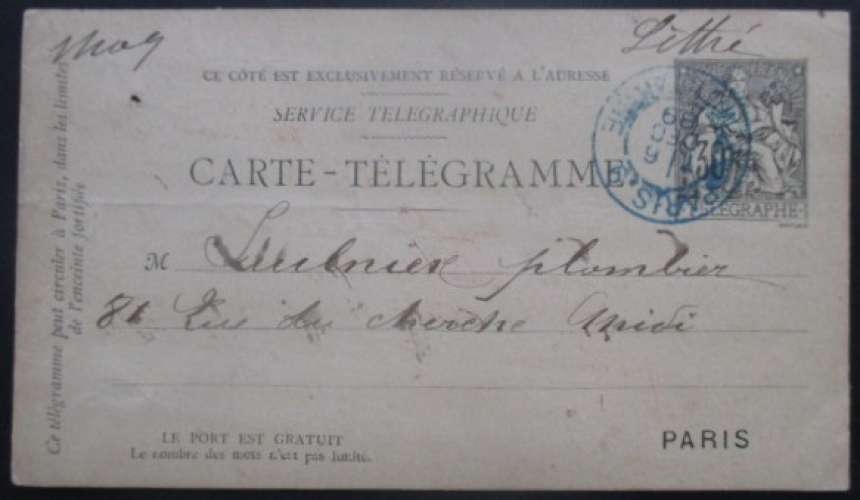 Littré
CE CÔTÉ EST EXCLUSIVEMENT RÉSERVÉ A L'ADRESSE
SERVICE TÉLÉGRAPHIQUE
CARTE-TÉLÉGRAMME
30
TÉLÉGRAPHE
PARIS
M Saulnier plombier
81 Rue du cherche midi
Ce télégramme peut circuler à Paris, dans les limites
de l'enceinte fortifiée.
LE PORT EST GRATUIT
Le nombre des mots n'est pas limité.
PARIS